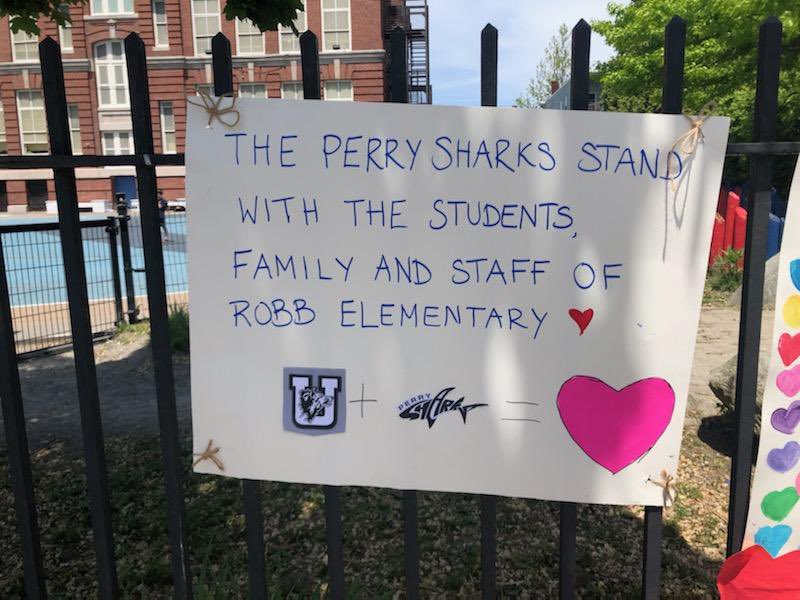 THE PERRY SHARKS STAND
WITH THE STUDENTS,
FAMILY AND STAFF OF
ROBB ELEMENTARY
U + PERRY SHARK =